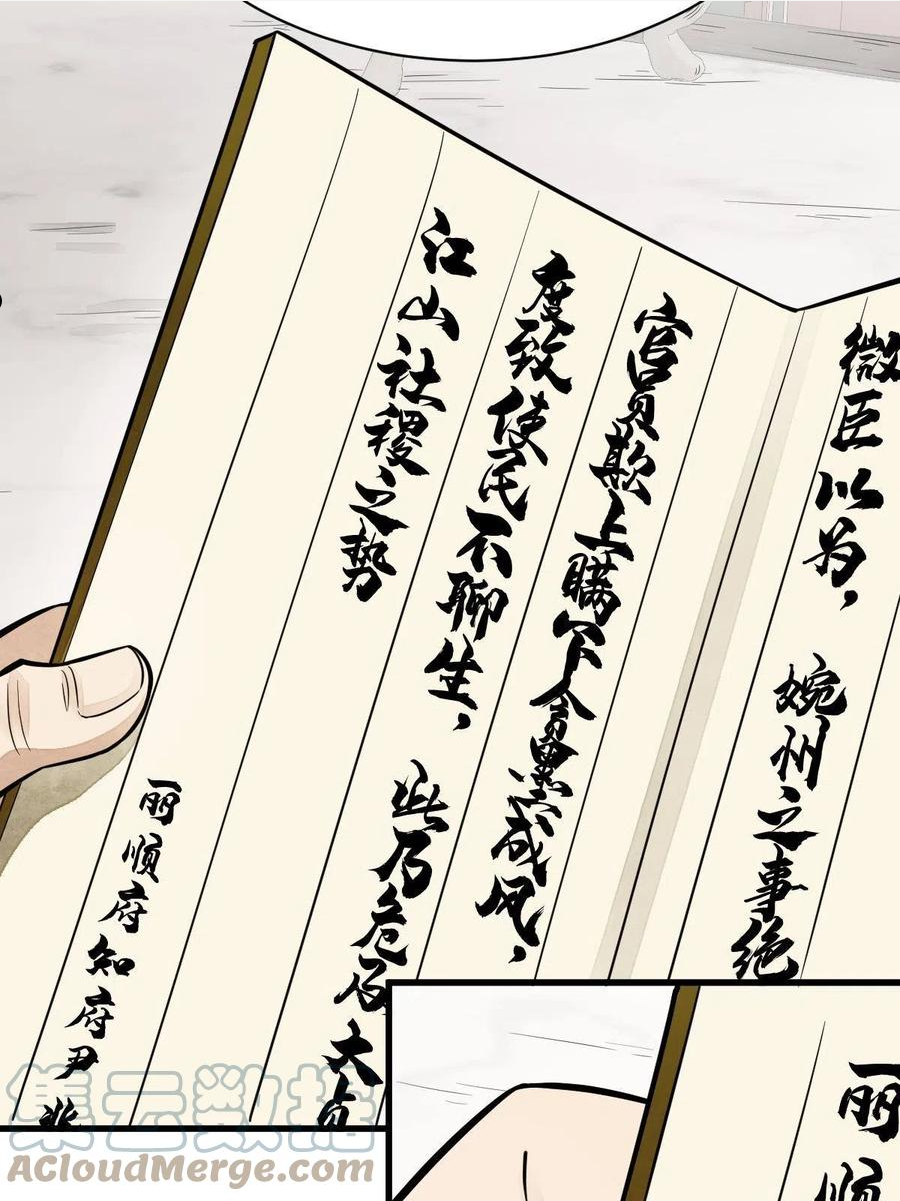 微臣以为，婉州之事绝
官员欺上瞒下贪墨成风，
度致使民不聊生，此乃危及大贞
江山社稷之势
丽顺府知府尹兆
丽顺
集云数据
ACloudMerge.com